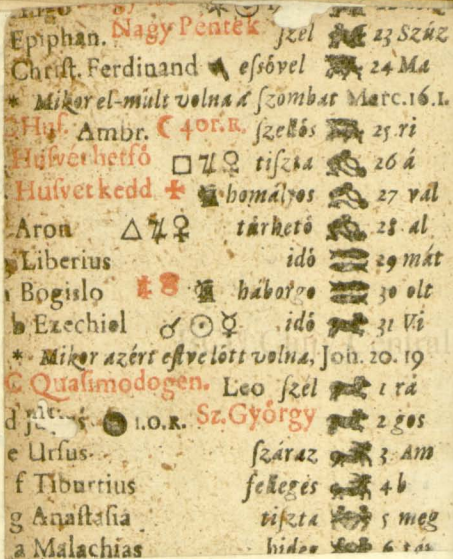 Epiphan. Nagy Péntek ſzel 23 Szűz
Chriſt. Ferdinand eſsővel 24 Ma
* Mikor el-mult volna a' ſzombat Marc.16.1.
Huſ. Ambr. ☾ 4 or. R. ſzelős 25 ri
Huſvet hetfő □ ♃ ♀ tiſzta 26 á
Huſvet kedd ✠ homályos 27 val
Aron △ ♃ ♀ türhető 28 al
Liberius idő 29 mát
Bogislo háborgo 30 olt
b Ezechiel ☌ ☉ ☿ idő 31 Vi
* Mikor azért eſtve lött volna, Joh. 20. 19
C Quaſimodogen. Leo ſzél 1 rá
d 1.O.R. Sz. György 2 gos
e Urſus ſzáraz 3 Am
f Tiburtius fellegés 4 b
g Anaſtaſia tiſzta 5 meg
a Malachias hideg 6